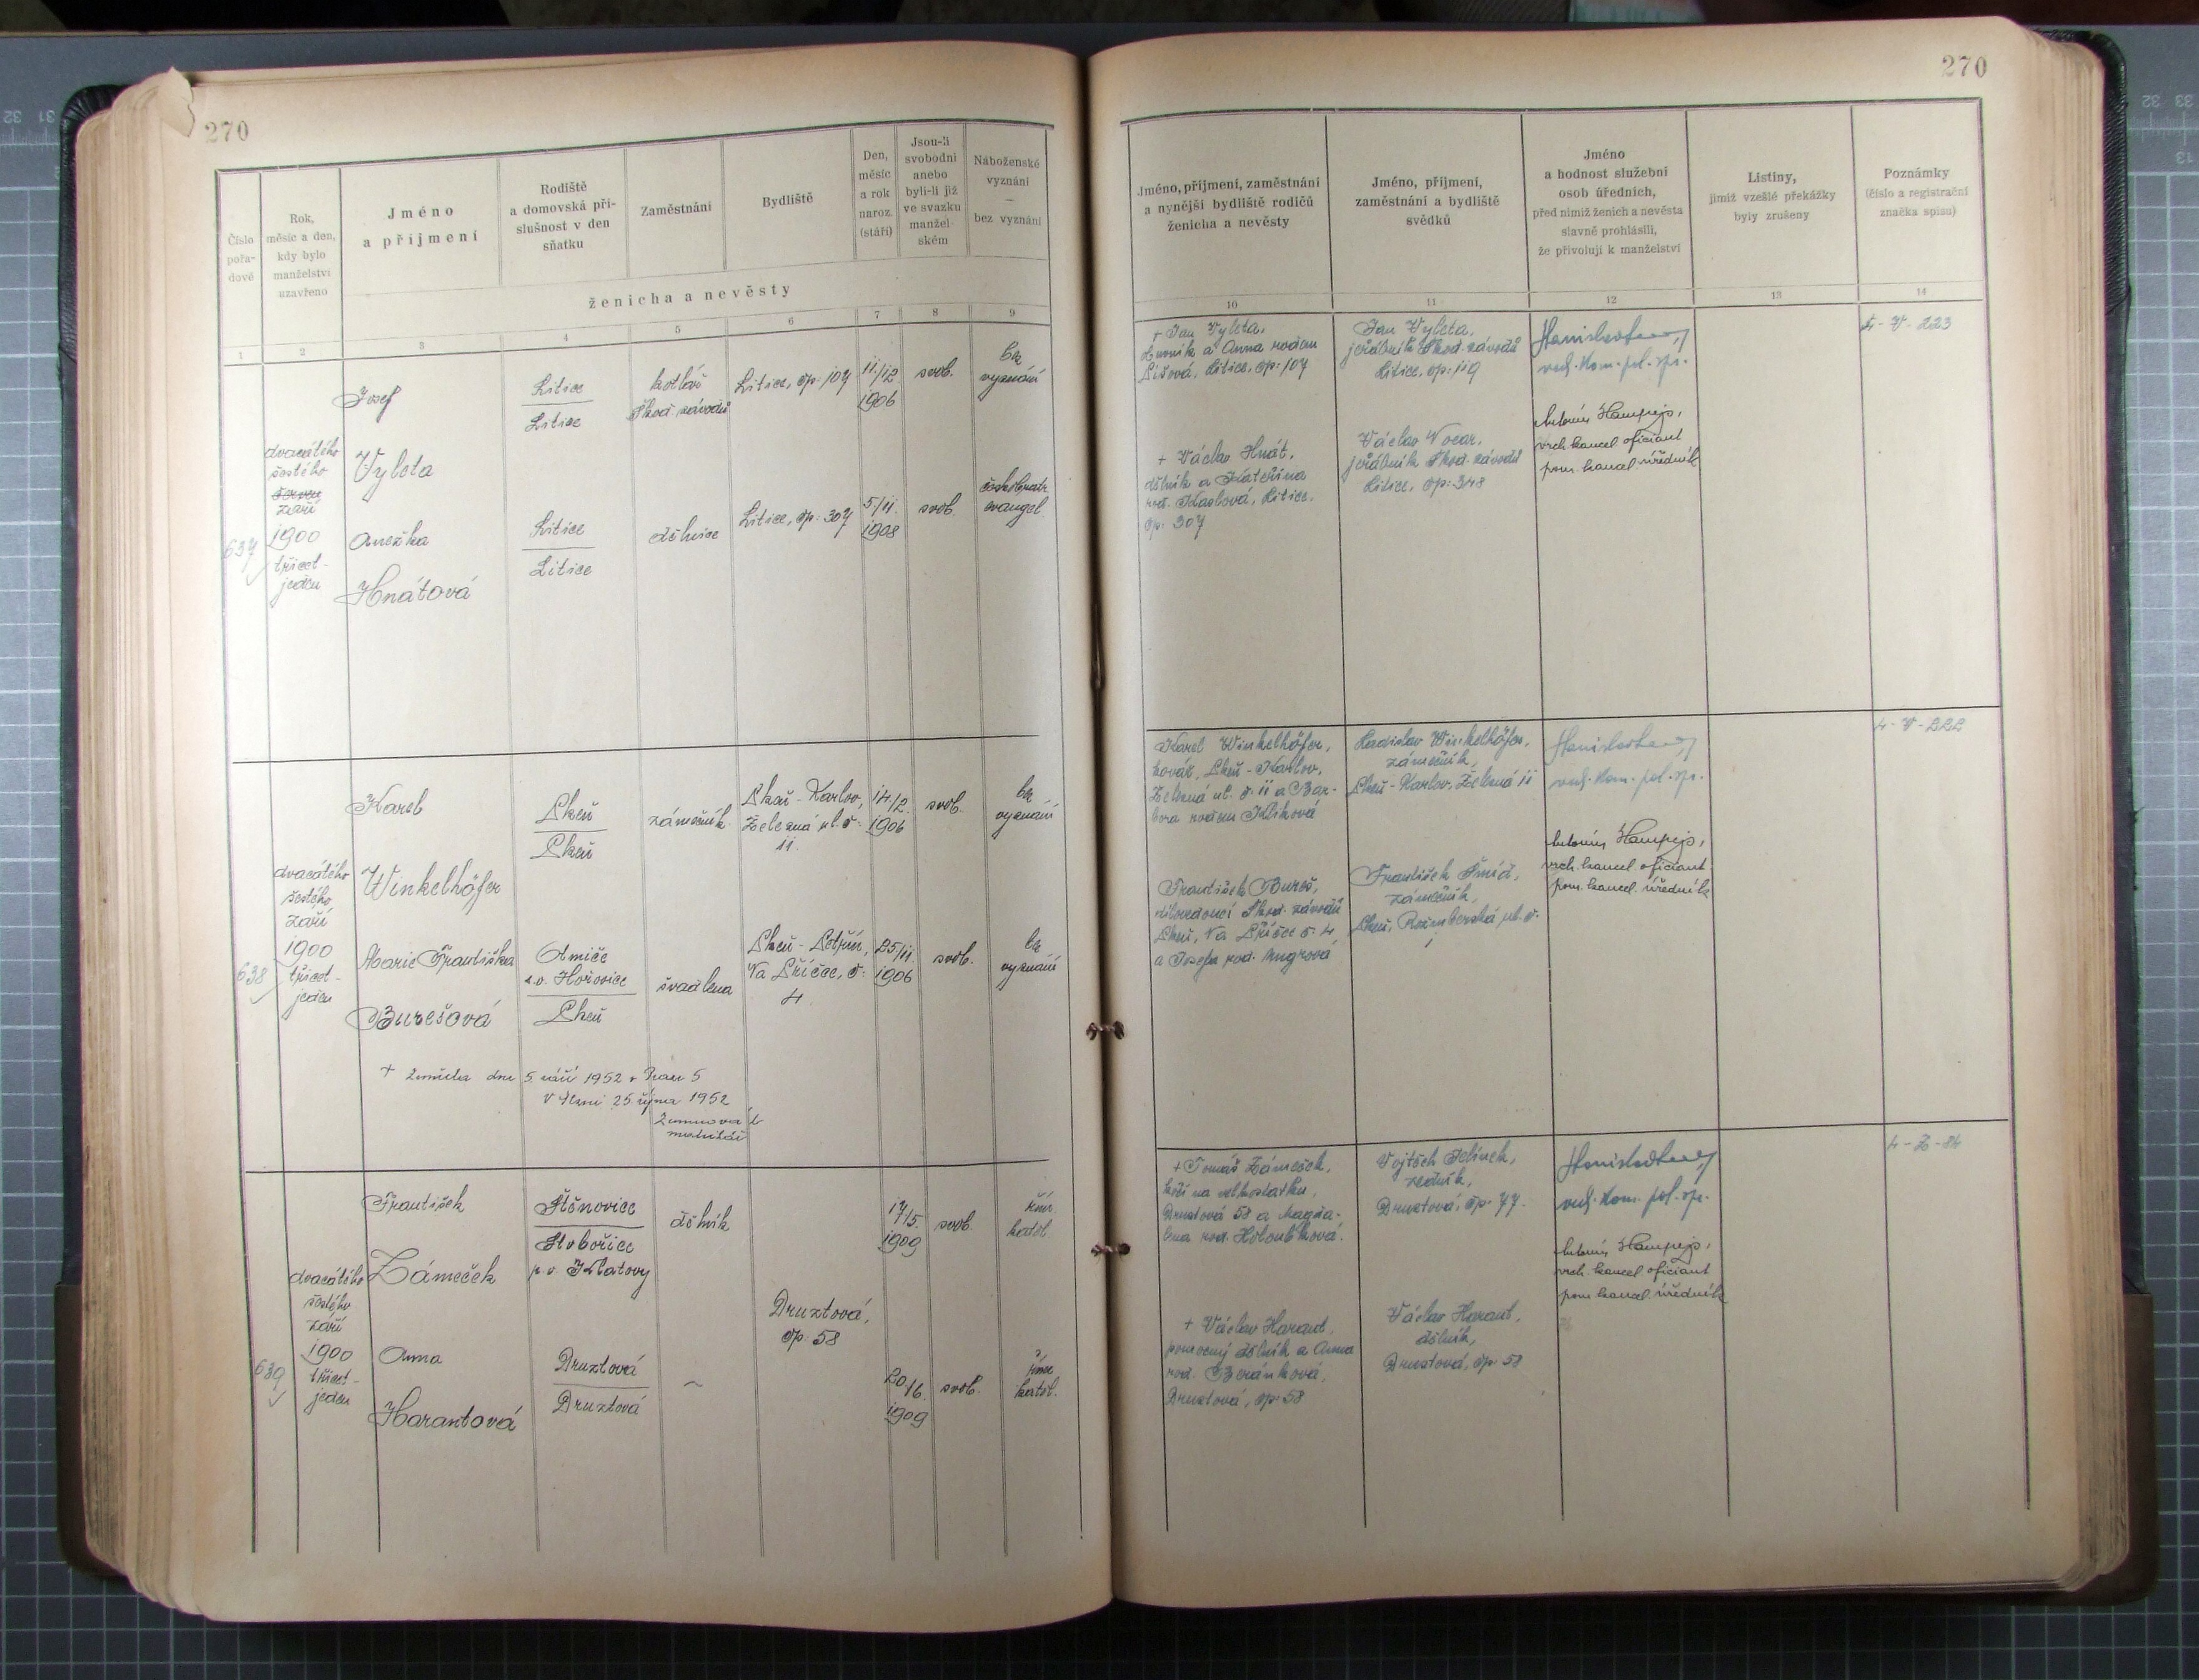 270
Číslo pořa- dové
Rok, měsíc a den, kdy bylo manželství uzavřeno
Jméno a příjmení
Rodiště a domovská pří- slušnost v den sňatku
Zaměstnání
Bydliště
Den, měsíc a rok naroz. (stáří)
Jsou-li svobodni anebo byli-li již ve svazku manžel- ském
Náboženské vyznání — bez vyznání
ženicha a nevěsty
1 2 3 4 5 6 7 8 9
637
dvacátého
šestého
září
1900
třicet-
jeden
Josef
Vyleta
Litice
Litice
kotlář
Škod. závodů
Litice, čp. 107
11./12
1906
svob.
bez
vyznání
Anežka
Hnátová
Litice
Litice
dělnice
Litice, čp. 307
5./11.
1908
svob.
českobratr.
evangel.
638
dvacátého
šestého
září
1900
třicet-
jeden
Karel
Winkelhöfer
Plzeň
Plzeň
zámečník
Plzeň - Karlov,
Železná ul. č.
11.
14./2.
1906
svob.
bez
vyznání
Marie Františka
Burešová
s.o. Hořovice
Plzeň
švadlena
Plzeň - Petřín,
Na Příčce, č.
4
25./11.
1906
svob.
bez
vyznání
+ ženicha dne 5. září 1952 v Praze 5
V Plzni 25. října 1952
639
dvacátého
šestého
září
1900
třicet-
jeden
František
Zámeček
Štěnovice
p.o. Klatovy
dělník
Druztová,
čp. 58
17./5.
1909
svob.
řím.
katol.
Anna
Harantová
Druztová
Druztová
~
20./6.
1909
svob.
řím.
katol.
270
Jméno, příjmení, zaměstnání a nynější bydliště rodičů ženicha a nevěsty
Jméno, příjmení, zaměstnání a bydliště svědků
Jméno a hodnost služební osob úředních, před nimiž ženich a nevěsta slavně prohlásili, že přivolují k manželství
Listiny, jimiž vzešlé překážky byly zrušeny
Poznámky (číslo a registrační značka spisu)
10 11 12 13 14
+ Jan Vyleta,
a Anna rodem
Litice, čp. 107
+ Václav Hnát,
dělník a Kateřina
rod. Kaslová, Litice,
čp. 307
Jan Vyleta,
jeřábník Škod. závodů
Litice, čp. 119
Václav Vocar,
jeřábník Škod. závodů
Litice, čp. 348
vrch. kom. pol. spr.
Antonín Hampejs,
vrch. kancel. oficiant
pom. kancel. úředník
4 - V - 223
Karel Winkelhöfer,
kovář, Plzeň - Karlov,
Železná ul. č. 11 a Bar-
bora rodem Klíková
František Bureš,
Škod. závodů
Plzeň, Na Příčce č. 4
a Josefa rod. Angrová
Ladislav Winkelhöfer,
zámečník,
Plzeň - Karlov, Železná 11
František Šmíd,
zámečník,
Plzeň, Rožmberská ul. č.
vrch. kom. pol. spr.
Antonín Hampejs,
vrch. kancel. oficiant
pom. kancel. úředník
4 - V - 222
+ Tomáš Zámeček,
kočí na velkostatku,
Druztová 58 a Magda-
lena rod. Holoubková.
+ Václav Harant,
pomocný dělník a Anna
rod. Beránková,
Druztová, čp. 58
Vojtěch Jelínek,
zedník,
Druztová, čp. 77.
Václav Harant,
dělník,
Druztová, čp. 58
vrch. kom. pol. spr.
Antonín Hampejs,
vrch. kancel. oficiant
pom. kancel. úředník
4 - Z - 84